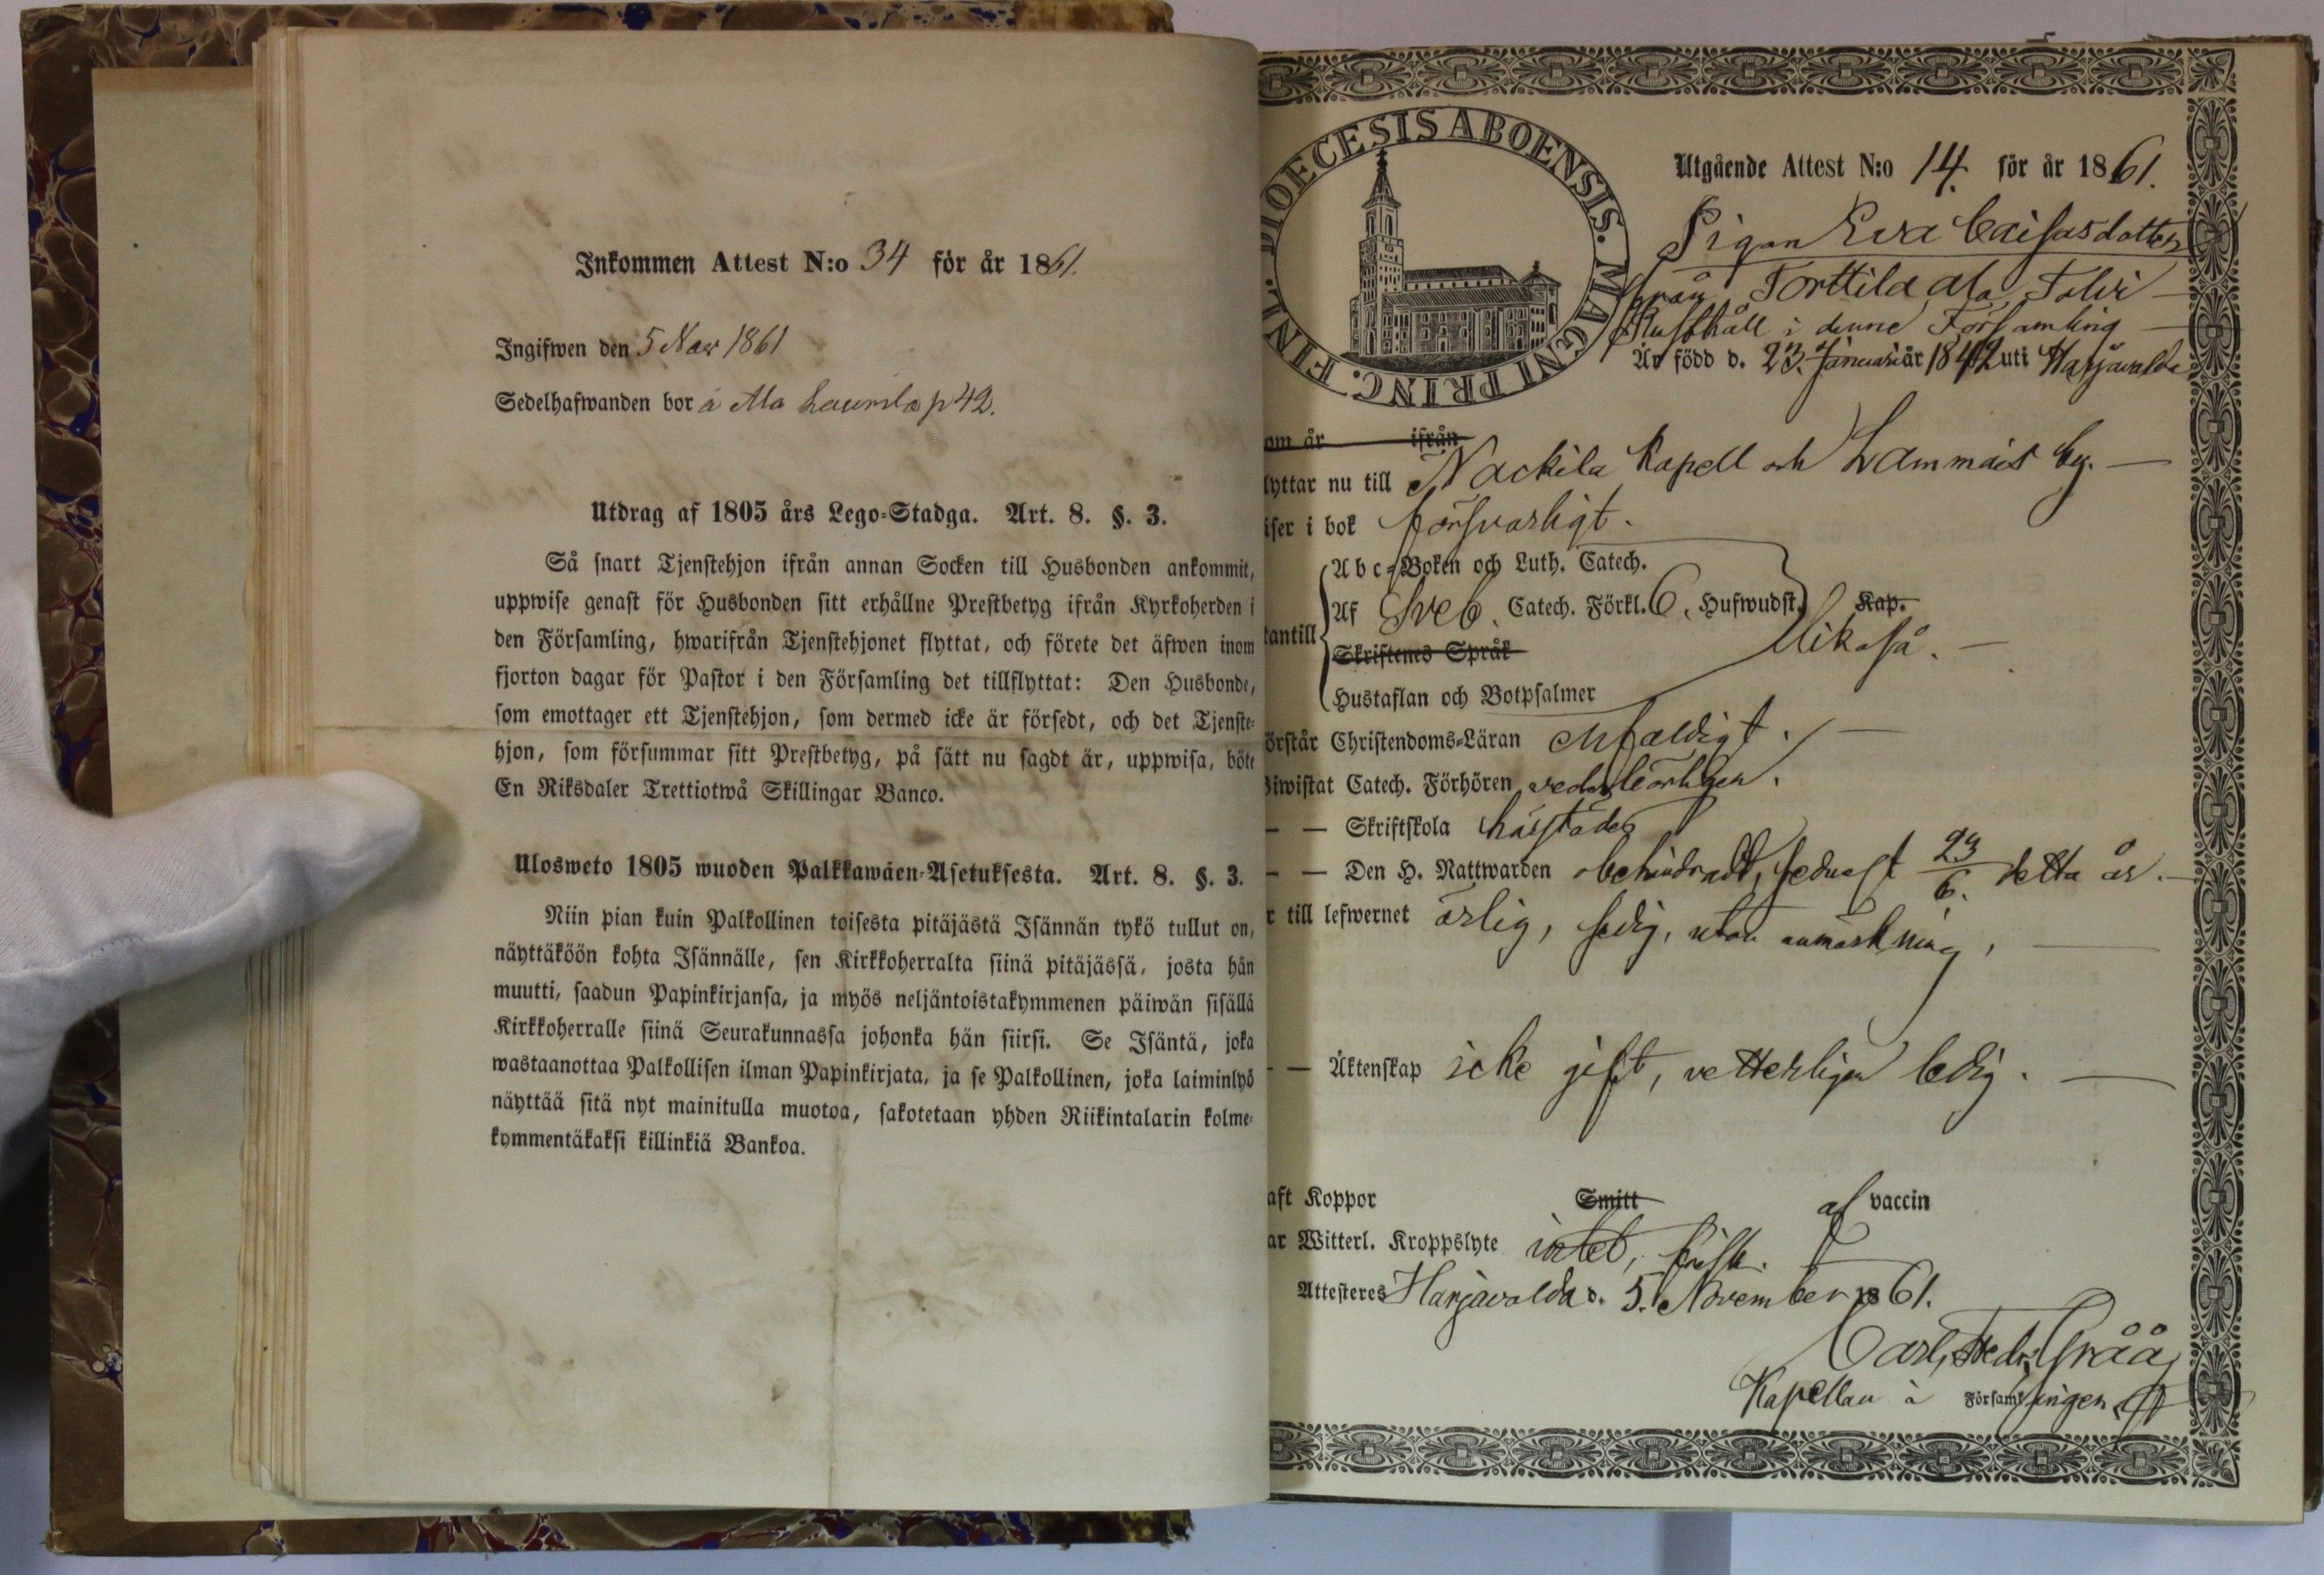 Inkommen Attest N:o 34 för år 1861.
Ingifwen den 5 Nov 1861
Sedelhafwanden bor å Ala Laurila p 42.
Utdrag af 1805 års Lego-Stadga. Art. 8. §. 3.
Så snart Tjenstehjon ifrån annan Socken till Husbonden ankommit,
uppwise genast för Husbonden sitt erhållne Prestbetyg ifrån Kyrkoherden i
den Församling, hwarifrån Tjenstehjonet flyttat, och förete det äfwen inom
fjorton dagar för Pastor i den Församling det tillflyttat: Den Husbonde,
som emottager ett Tjenstehjon, som dermed icke är försedt, och det Tjenste-
hjon, som försummar sitt Prestbetyg, på sätt nu sagdt är, uppwisa, böte
En Riksdaler Trettiotwå Skillingar Banco.
Ulosweto 1805 wuoden Palkkawäen-Asetuksesta. Art. 8. §. 3.
Niin pian kuin Palkollinen toisesta pitäjästä Isännän tykö tullut on,
näyttäköön kohta Isännälle, sen Kirkkoherralta siinä pitäjässä, josta hän
muutti, saadun Papinkirjansa, ja myös neljäntoistakymmenen päiwän sisällä
Kirkkoherralle siinä Seurakunnassa johonka hän siirsi. Se Isäntä, joka
wastaanottaa Palkollisen ilman Papinkirjata, ja se Palkollinen, joka laiminlyö
näyttää sitä nyt mainitulla muotoa, sakotetaan yhden Riikintalarin kolme-
kymmentäkaksi killinkiä Bankoa.
DIOECESIS ABOENSIS. MAGNI PRINC. FINL.
Utgående Attest N:o 14. för år 1861.
Pigan Eva Caisasdotter
från Torttila Ala Talvi
Rusthåll i denne Församling
Är född d. 23. Januari år 1842 uti Harjavalda
om år ifrån
lyttar nu till Nackila Kapell och Lammais by.
iser i bok försvarligt.
Abc-Boken och Luth. Catech.
antill Af Sveb. Catech. Förkl. 6, Hufwudst. Kap.
Likaså.
Skriftenes Språk
Hustaflan och Botpsalmer
örstår Christendoms-Läran enfaldigt.
Biwistat Catech. Förhören vederbörligen.
— — Skriftskola härstädes
— — Den H. Nattwarden obehindradt, sednast 23/6. detta år.
r till lefwernet ärlig, sedig, utan anmärkning,
— — Äktenskap icke gift, vetterligen ledig.
aft Koppor Smitt af vaccin
ar Witterl. Kroppslyte intet, frisk.
Attesteres Harjavalda d. 5. November 1861.
Carl Fredr. Gråå
Kapellan i Församlingen